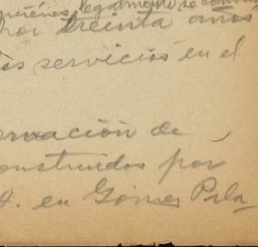 legalmente se
por treinta años
servicios en el
ervación de
onstruidos por
A. en Gómez Pala